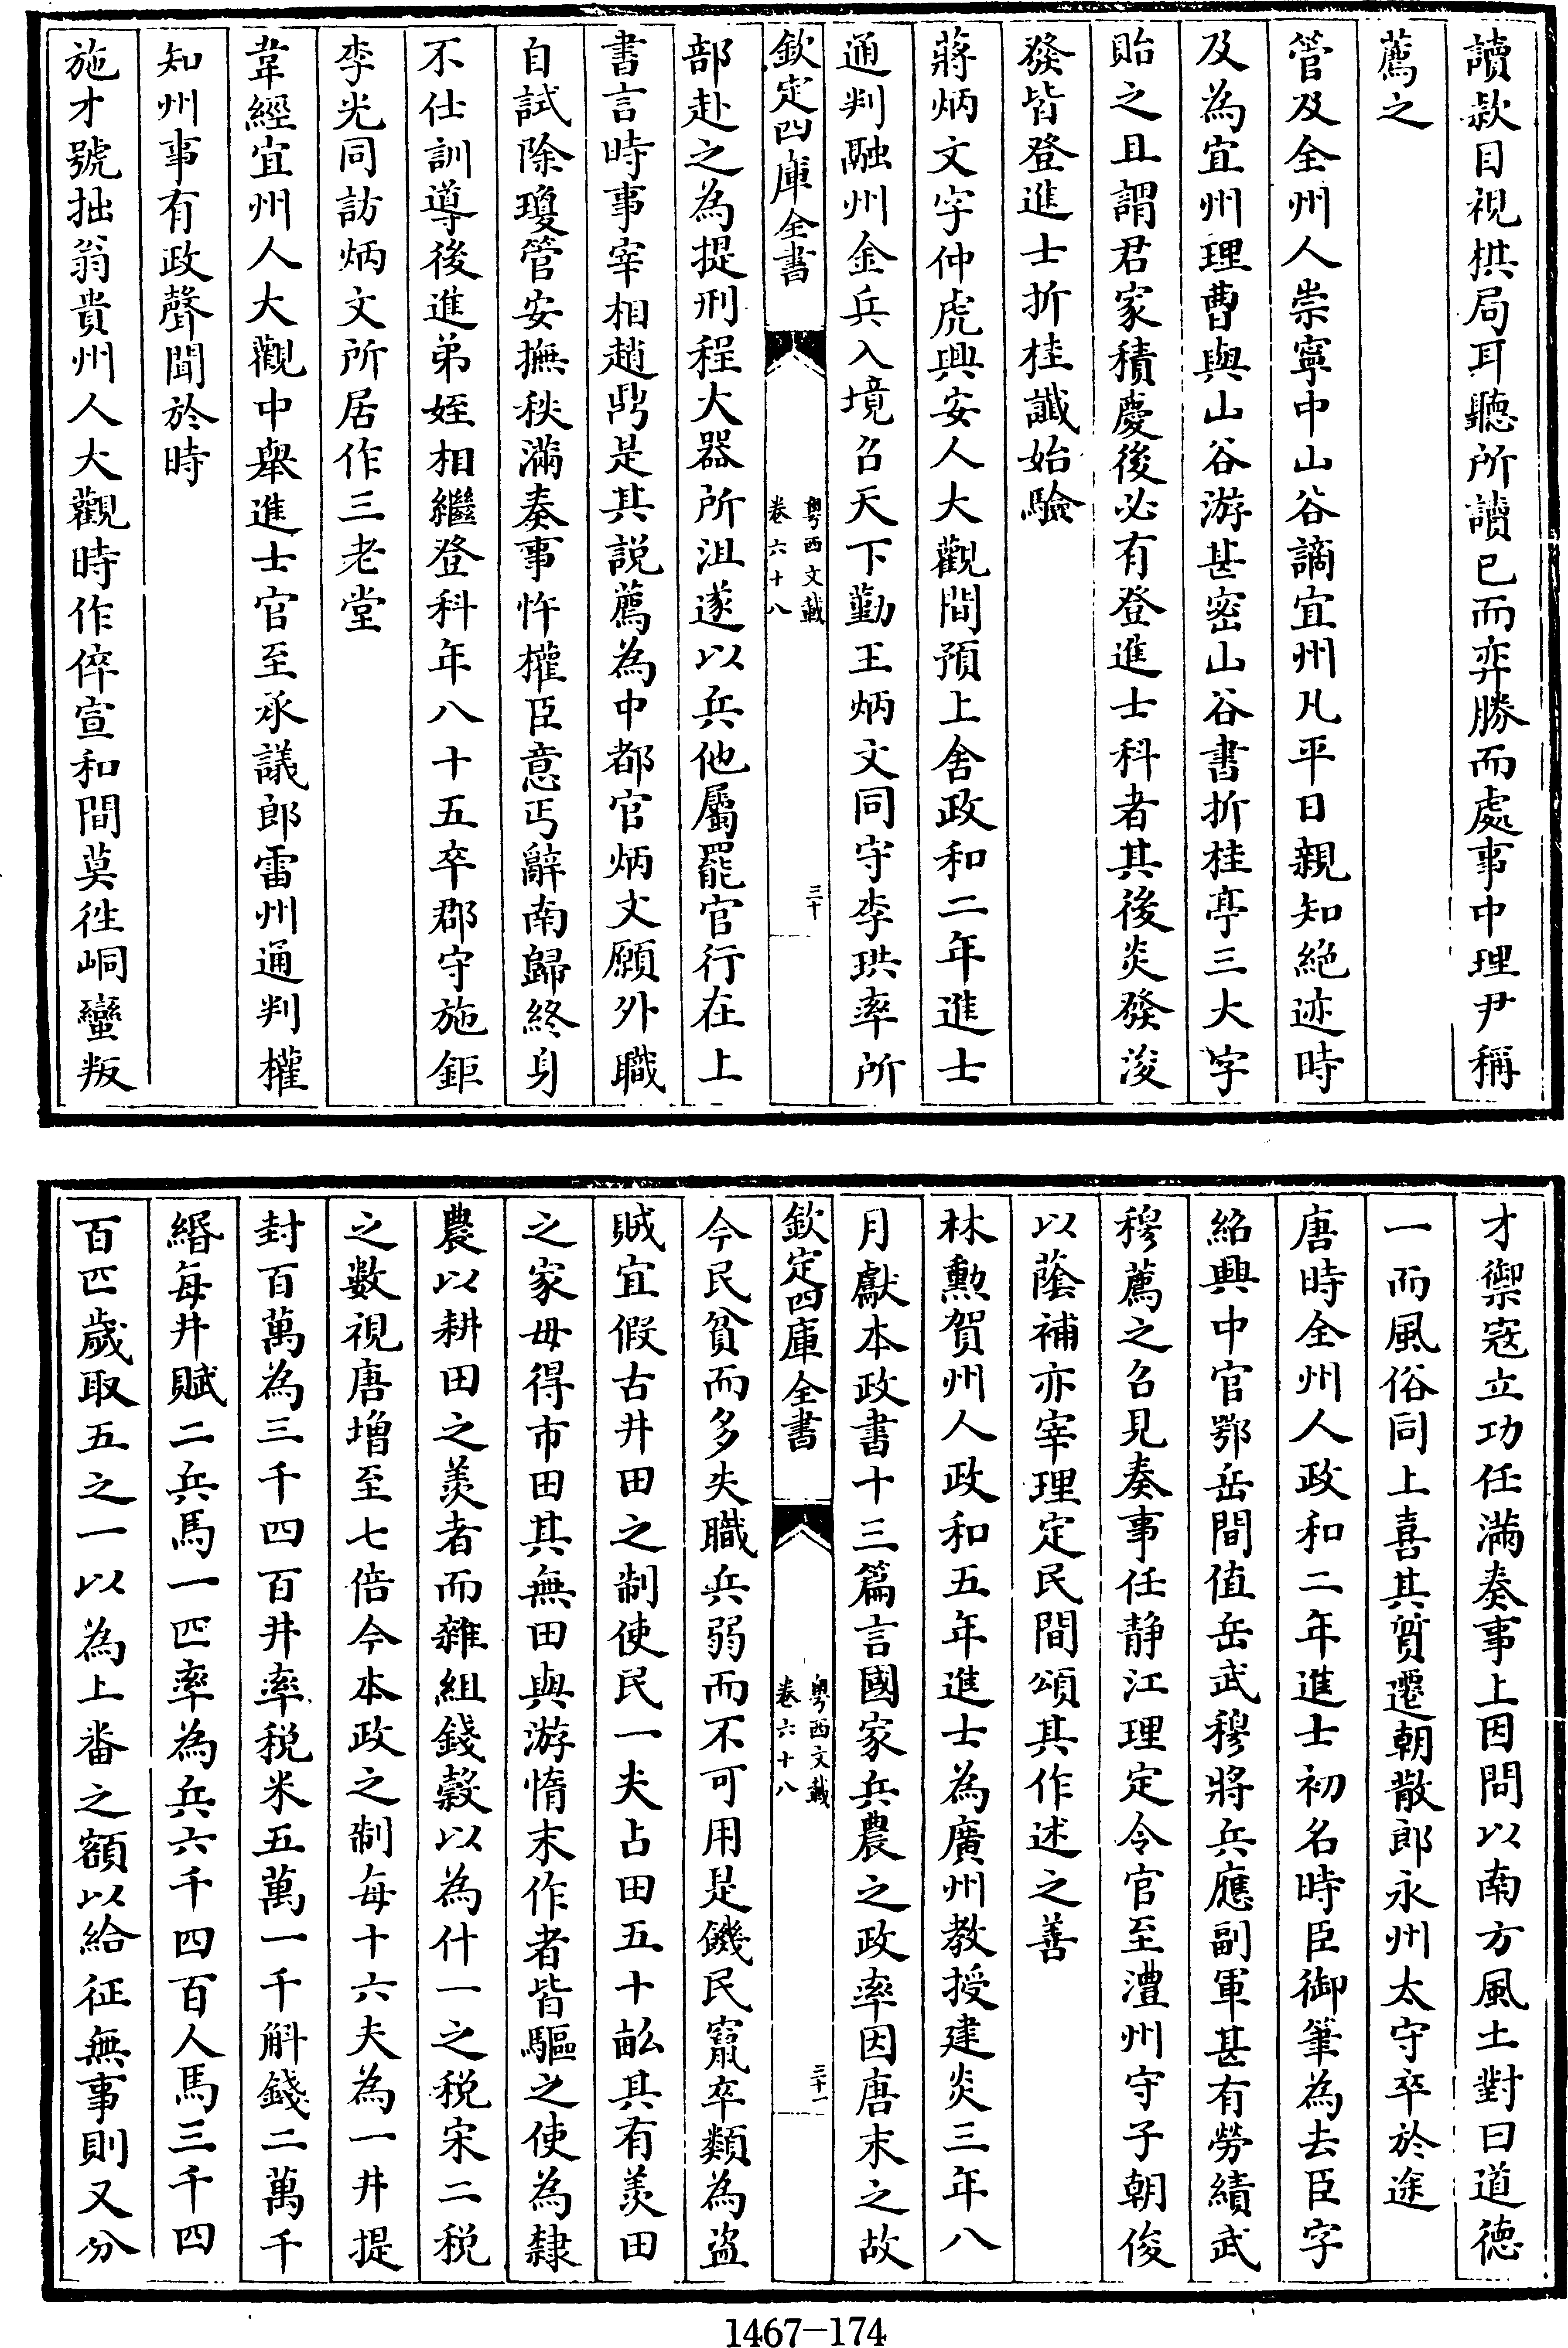 讀款目視棋局耳聽所讀已而弈勝而處事中理尹稱
薦之
管及全州人崇寧中山谷謫宜州凡平日親知絶迹時
及為宜州理曹與山谷游甚密山谷書折桂亭三大字
貽之且謂君家積慶後必有登進士科者其後炎發浚
發皆登進士折桂讖始驗
蔣炳文字仲虎興安人大觀間預上舍政和二年進士
通判融州金兵入境召天下勤王炳文同守李珙率所
欽定四庫全書
粤西文載
卷六十八
三十
部赴之為提刑程大器所沮遂以兵他屬罷官行在上
書言時事宰相趙鼎是其說薦為中都官炳文願外職
自試除瓊管安撫秩滿奏事忤權臣意丐辭南歸終身
不仕訓導後進弟姪相繼登科年八十五卒郡守施鉅
李光同訪炳文所居作三老堂
韋經宜州人大觀中舉進士官至承議郎雷州通判權
知州事有政聲聞於時
施才號拙翁貴州人大觀時作倅宣和間莫徃峒蠻叛
才禦寇立功任滿奏事上因問以南方風土對曰道德
一而風俗同上喜其賀遷朝散郎永州太守卒於途
唐時全州人政和二年進士初名時臣御筆為去臣字
紹興中官鄂岳間值岳武穆將兵應副軍甚有勞績武
穆薦之召見奏事任静江理定令官至澧州守子朝俊
以蔭補亦宰理定民間頌其作述之善
林勳賀州人政和五年進士為廣州教授建炎三年八
月獻本政書十三篇言國家兵農之政率因唐末之故
欽定四庫全書
粤西文載
卷六十八
三十一
今民貧而多失職兵弱而不可用是饑民竄卒類為盗
賊宜假古井田之制使民一夫占田五十畝其有羨田
之家毋得市田其無田與游惰末作者皆驅之使為隸
農以耕田之羨者而雜組錢穀以為什一之税宋二税
之數視唐增至七倍今本政之制每十六夫為一井提
封百萬為三千四百井率税米五萬一千斛錢二萬千
緡每井賦二兵馬一匹率為兵六千四百人馬三千四
百匹歲取五之一以為上番之額以給征無事則又分
1467-174